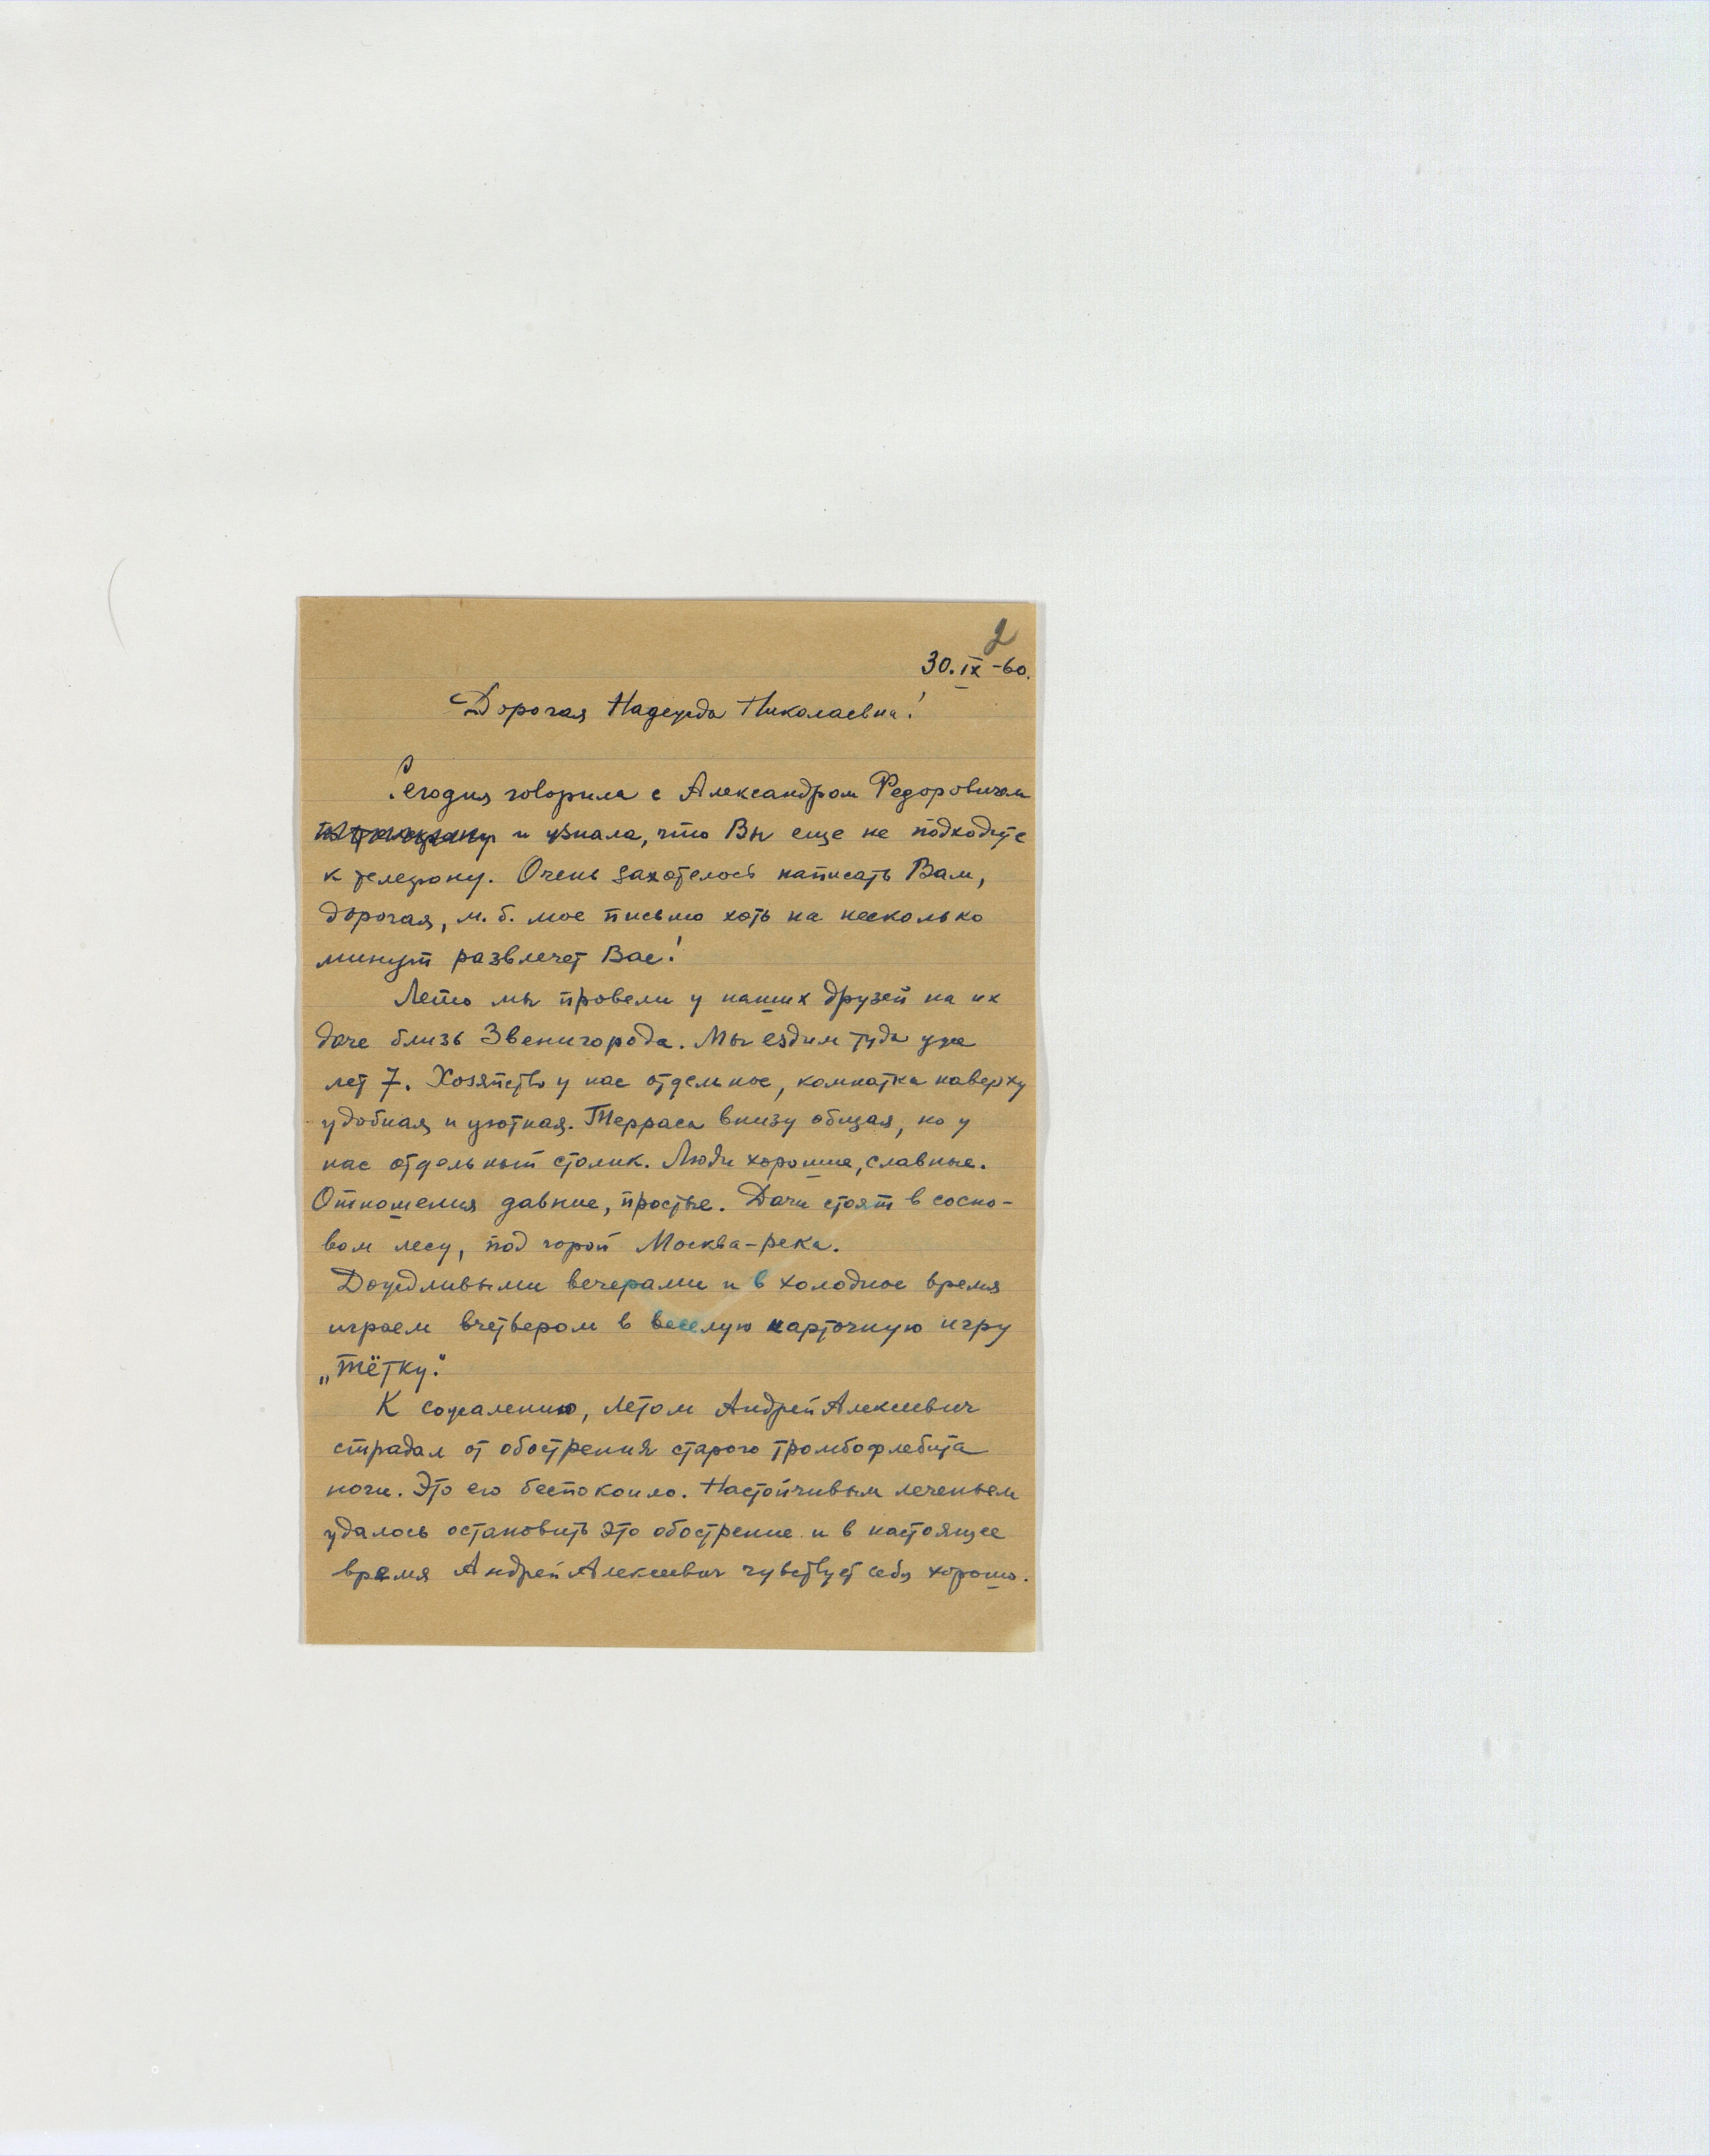 2
30.IX-60.
Дорогая Надежда Николаевна!
Сегодня говорила с Александром Федоровичем
и узнала, что Вы еще не подходите
к телефону. Очень захотелось написать Вам,
дорогая, м.б. мое письмо хоть на несколько
минут развлечет Вас!
Лето мы провели у наших друзей на их
даче близь Звенигорода. Мы ездим туда уже
лет 7. Хозяйство у нас отдельное, комнатка наверху
удобная и уютная. Терраса внизу общая, но у
нас отдельный столик. Люди хорошие, славные.
Отношения давние, простые. Дачи стоят в сосно-
вом лесу, под горой Москва-река.
Дождливыми вечерами и в холодное время
играем вчетвером в веселую карточную игру
„тётку".
К сожалению, летом Андрей Алексеевич
страдал от обострения старого тромбофлебита
ноги. Это его беспокоило. Настойчивым леченьем
удалось остановить это обострение и в настоящее
время Андрей Алексеевич чувствует себя хорошо.